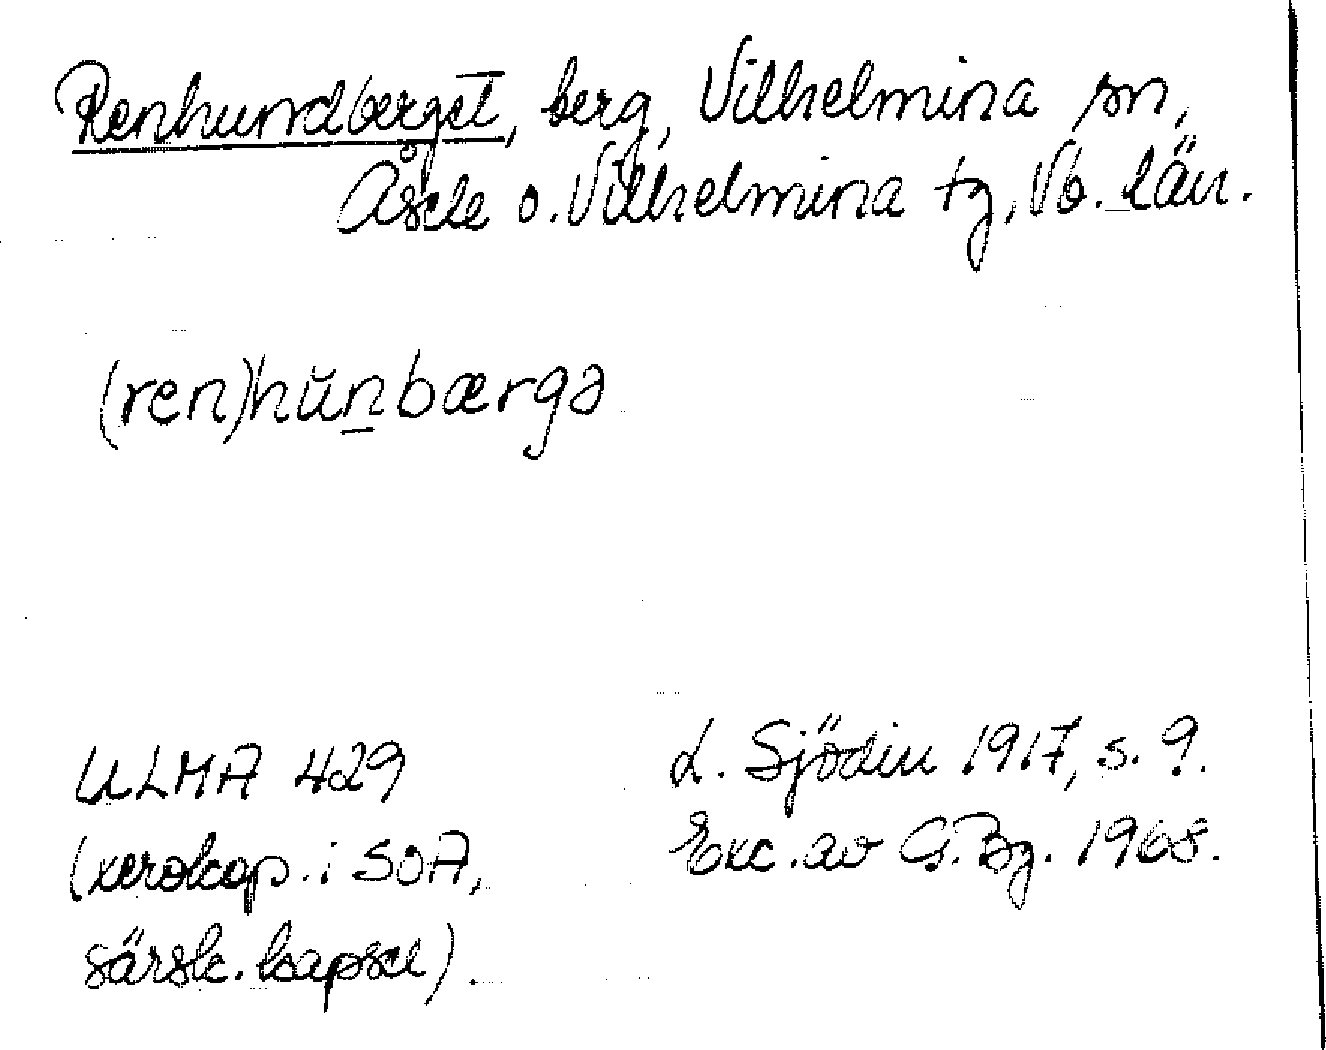 Renhundberget, berg, Vilhelmina sn,
Åsele o. Vilhelmina tg, Vb. län.
(ren)hŭn̲bærgə
ULMA 429
(xerokop. i SOA,
särsk. kapsel).
L. Sjödin 1917, s. 9.
Exc. av G. Bg. 1968.